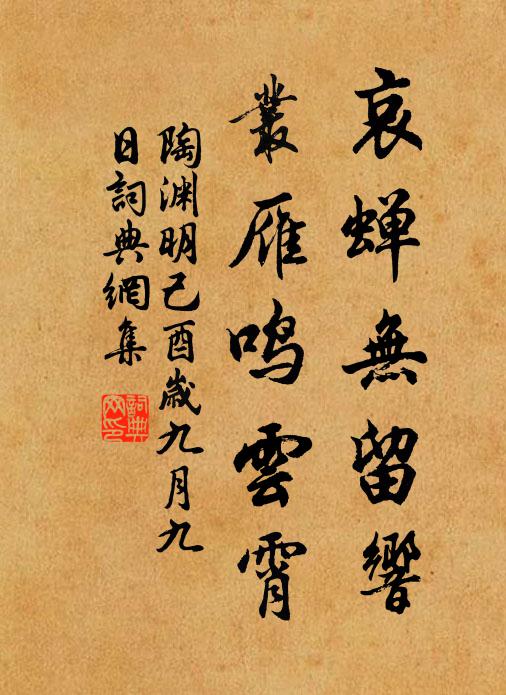 哀蝉無留響
叢雁鳴雲霄
陶渊明己酉歲九月九
日詞典網集
詞典
网印